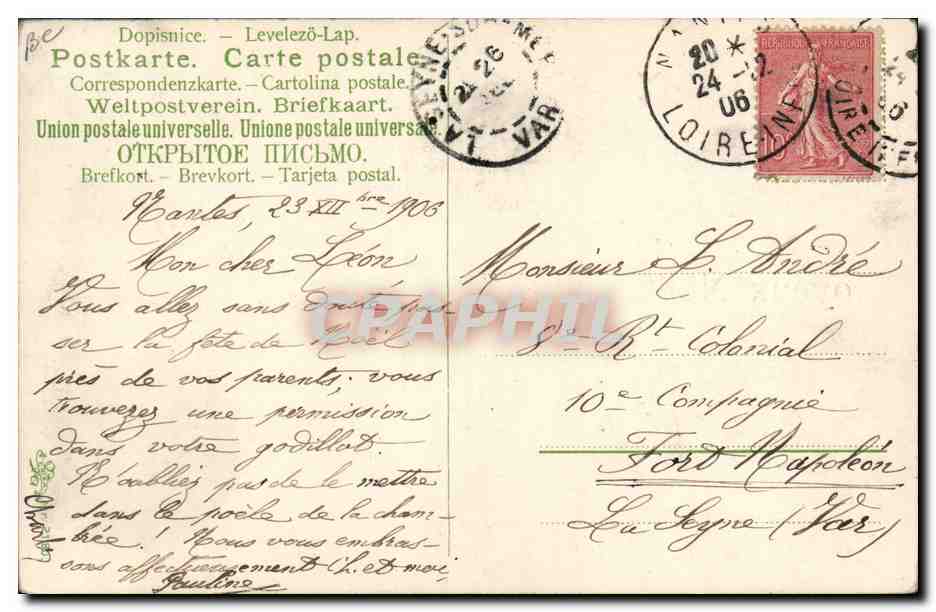 Be
Dopisnice. – Levelező-Lap.
Postkarte. Carte postale.
Correspondenzkarte. – Cartolina postale.
Weltpostverein. Briefkaart.
Union postale universelle. Unione postale universa
ОТКРЫТОЕ ПИСЬМО.
Brefkort. – Brevkort. – Tarjeta postal.
LA SEYNE-SUR-MER
26
VAR
20 *
24 -12
06
LOIRE INF
REPUBLIQUE FRANÇAISE
10
Nantes, 23 XII bre 1906
Mon cher Léon
Vous allez sans doute pas-
ser la fête de Noël
près de vos parents; vous
trouverez une permission
dans votre godillot.
N'oubliez pas de le mettre
dans le poêle de la cham-
brée! Nous vous embras-
sons affectueusement Ch. et moi,
Pauline
Monsieur L. André
8e Rt Colonial
10e Compagnie
Fort Napoléon
La Seyne (Var)
CPAPHIL